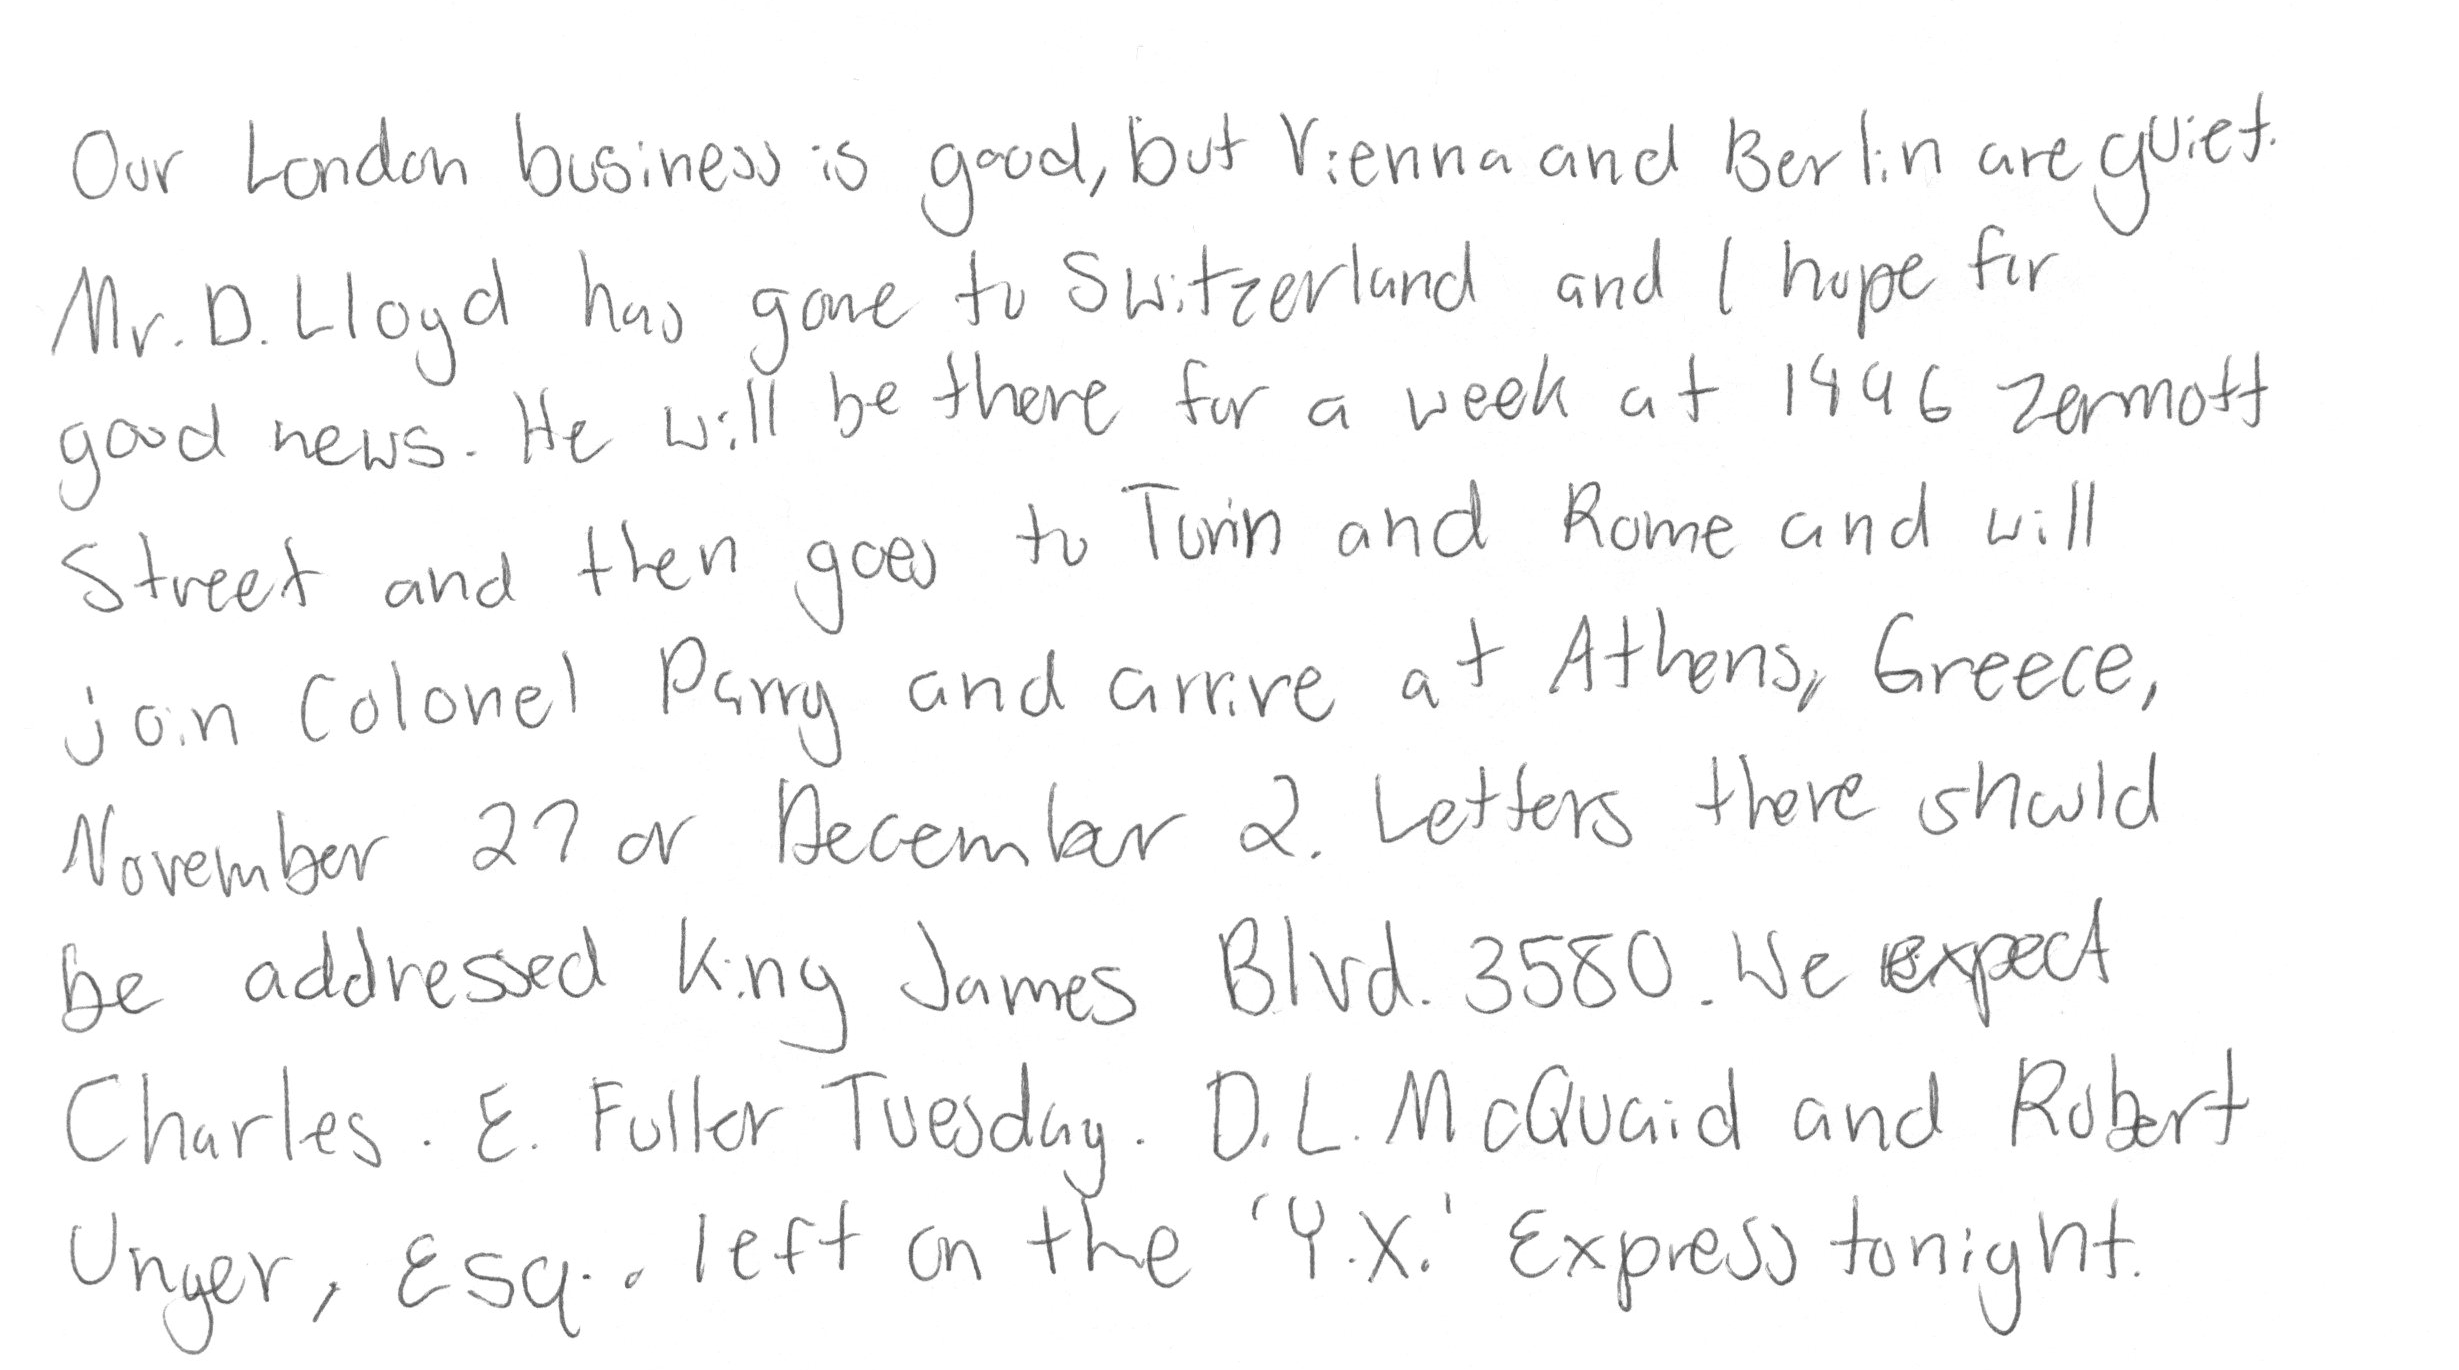 Our London business is good, but Vienna and Berlin are quiet.
Mr. D. Lloyd has gone to Switzerland and I hope for
good news. He will be there for a week at 1496 Zermott
Street and then goes to Turin and Rome and will
join Colonel Parry and arrive at Athens, Greece,
November 27 or December 2. Letters there should
be addressed King James Blvd. 3580. We expect
Charles. E. Fuller Tuesday. D.L. McQuaid and Robert
Unger, Esq.. left on the 'Y.X.' Express tonight.